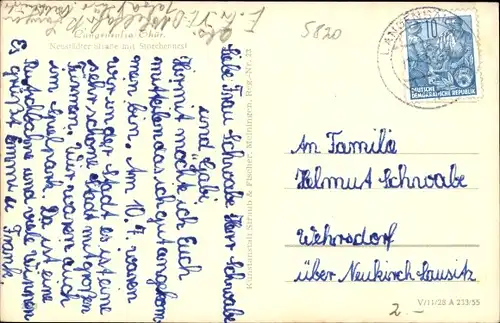 5820
LANGENSALZA
10
DEUTSCHE
DEMOKRATISCHE REPUBLIK
Langensalza Thür.
Neustädter Straße mit Storchennest
Liebe Frau Schwabe Herr Schwabe
und Gabi
Hiermit möchte ich Euch
mitteilen das ich gut angekom
men bin. Am 10.7. waren
wir in der Stadt es ist eine
sehr schöne Stadt mit großen
Türmen. Wir waren auch
im Spielpark. Da ist eine
Rutschbahne und viele Wippen
Es grüßt Emmi u
Frank.
Kunstanstalt Straub & Fischer, Meiningen, Reg.-Nr. 23
An Familie
Helmut Schwabe
Wehrsdorf
über Neukirch-Lausitz
V/11/28 A 213/55
2.-